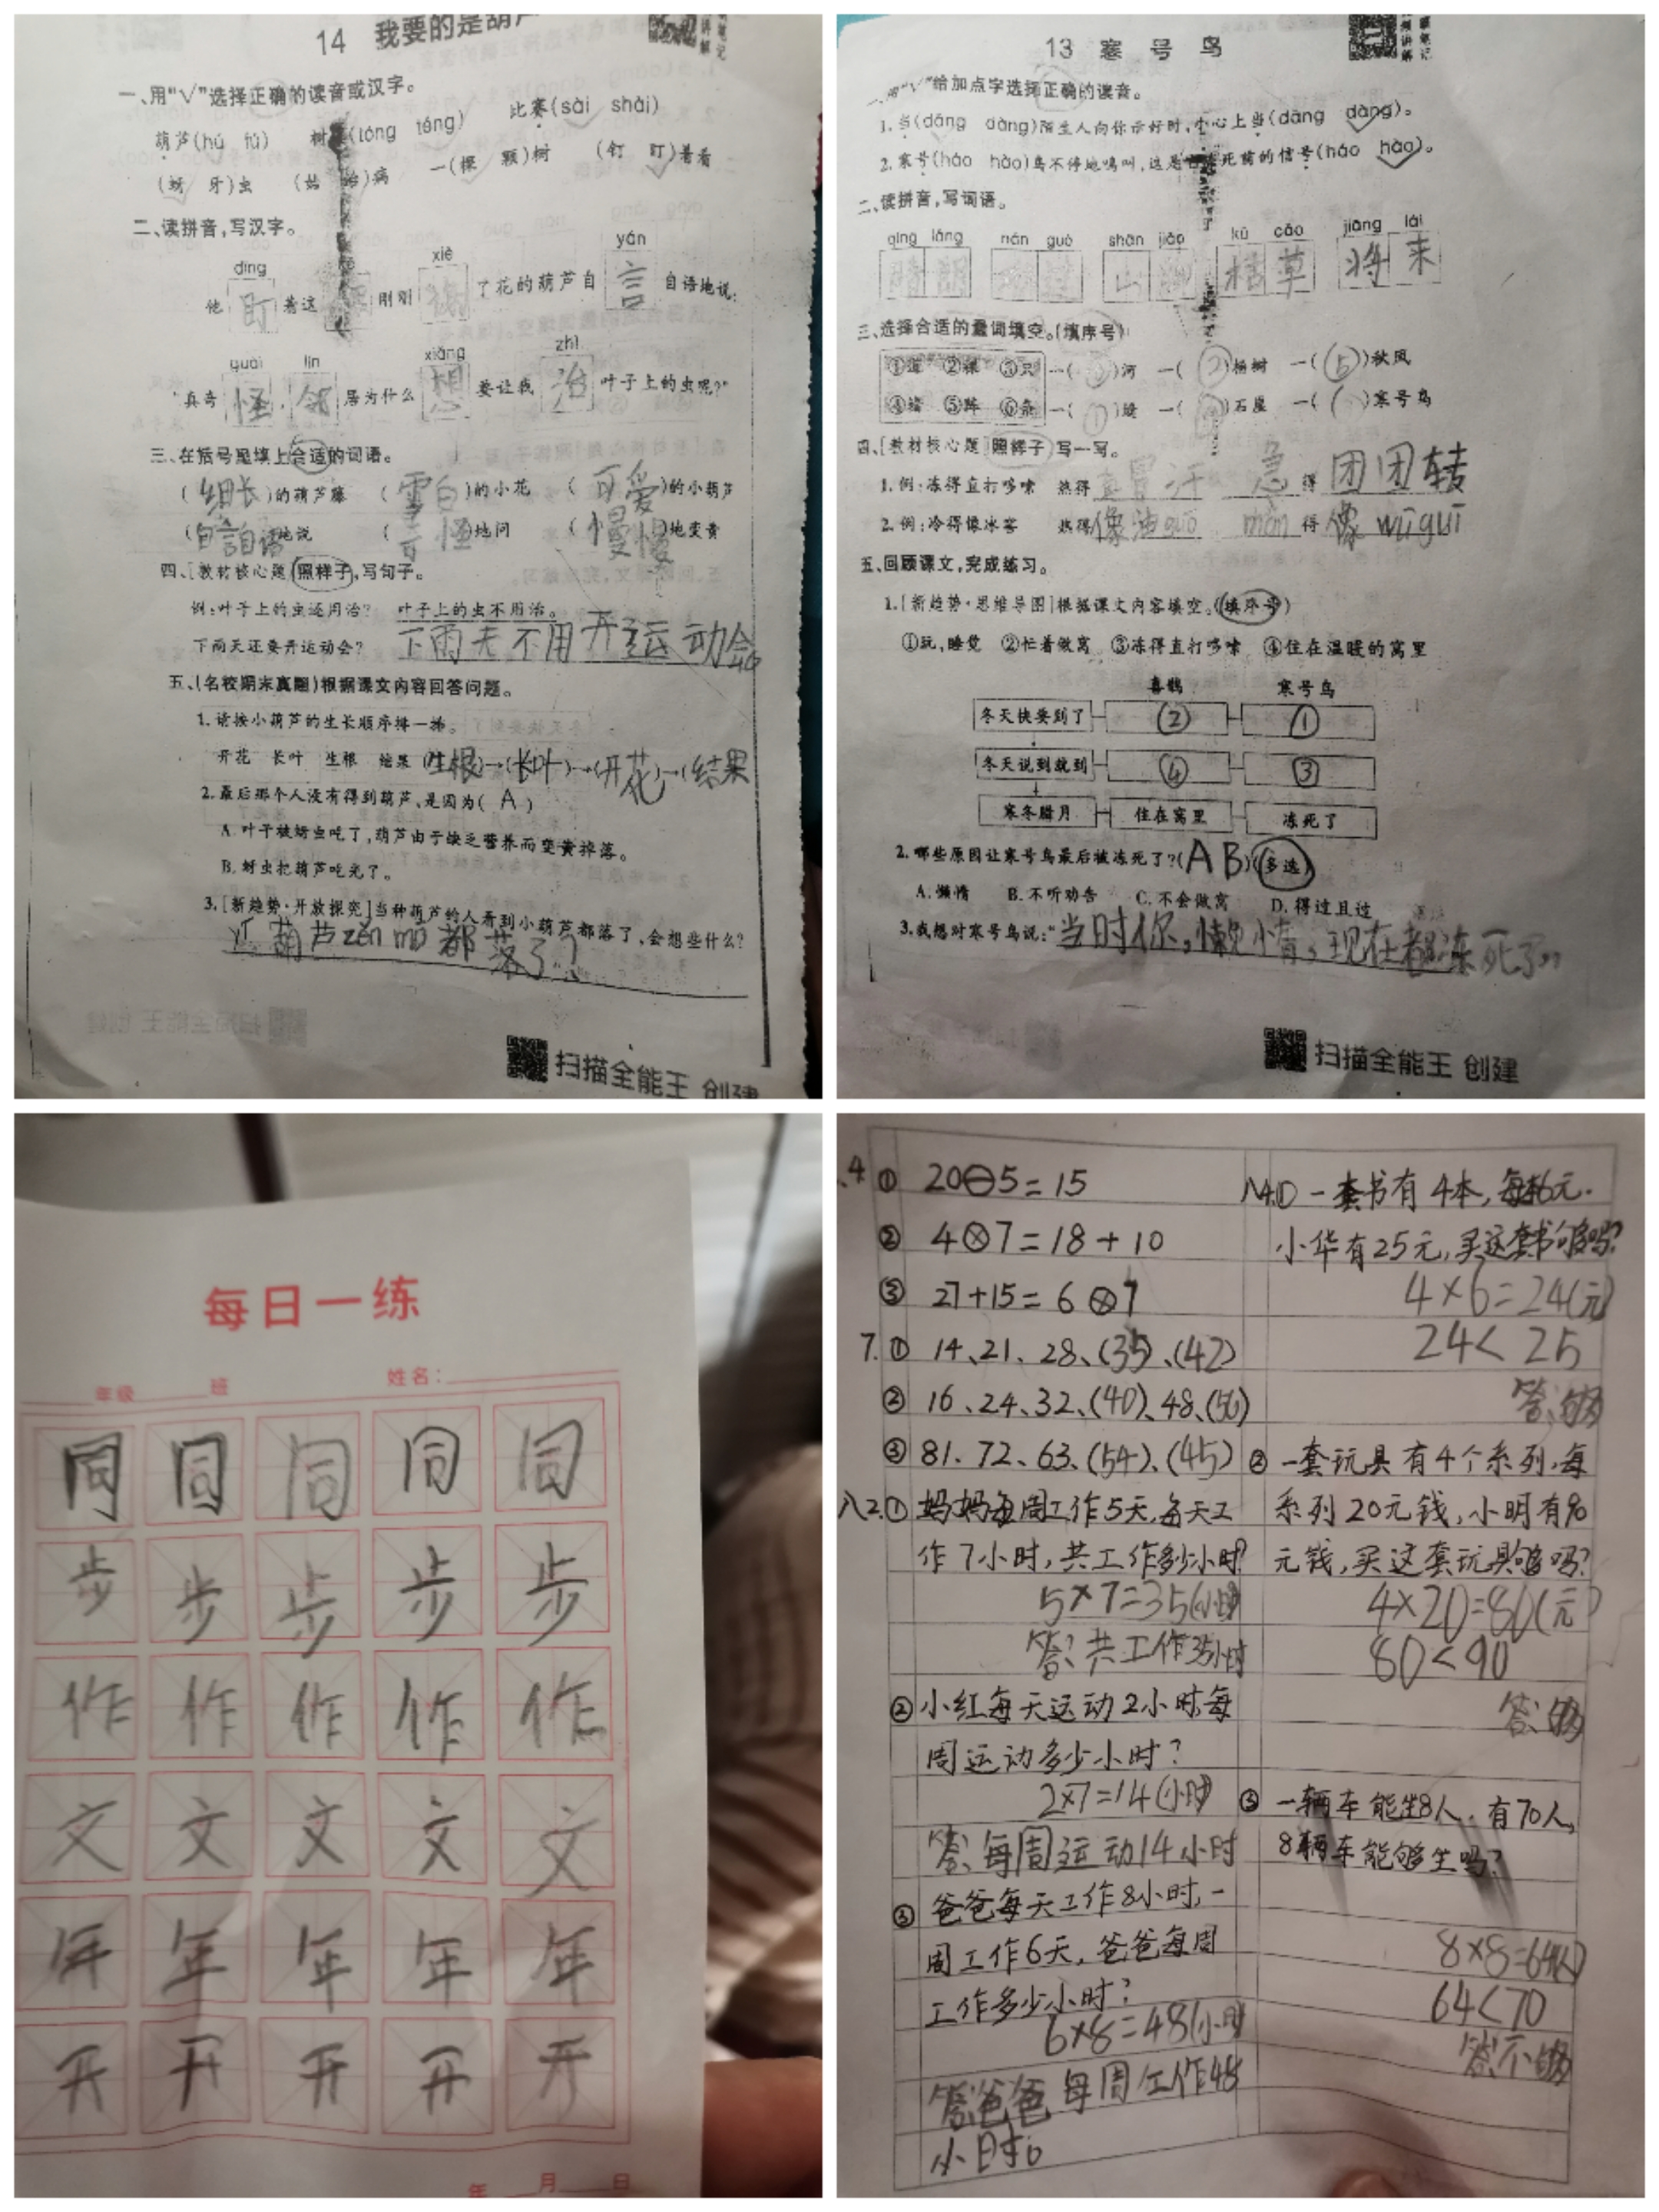 14 我要的是葫芦
一、用“√”选择正确的读音或汉字。
葫芦(hú fú) 树 (téng) 比赛(sài shài)
(蚜 牙)虫 病 一(棵 颗)树 (钉 盯)着看
二、读拼音,写汉字。
dīng xiè yán
他 盯 着这 刚刚 谢 了花的葫芦自 言 自语地说:
guài lín xiǎng zhì
“真奇 怪, 邻 居为什么 想 要让我 治 叶子上的虫呢?”
三、在括号里填上合适的词语。
(细长)的葫芦藤 (雪白)的小花 (可爱)的小葫芦
(自言自语)地说 (奇怪)地问 (慢慢)地变黄
四、[教材核心题]照样子,写句子。
例:叶子上的虫还用治? 叶子上的虫不用治。
下雨天还要开运动会? 下雨天不用开运动会
五、(名校期末真题)根据课文内容回答问题。
1.请按小葫芦的生长顺序排一排。
开花 长叶 生根 结果 (生根)→(长叶)→(开花)→(结果
2.最后那个人没有得到葫芦,是因为( A )
A.叶子被蚜虫吃了,葫芦由于缺乏营养而变黄掉落。
B.蚜虫把葫芦吃光了。
3.[新趋势·开放探究]当种葫芦的人看到小葫芦都落了,会想些什么?
葫芦zěn mo都落了?
扫描全能王 创建
13 寒号鸟
一、用“√”给加点字选择正确的读音。
1.当(dāng dàng)陌生人向你示好时,小心上当(dāng dàng)。
2.寒号(háo hào)鸟不停地鸣叫,这是 死前的信号(háo hào)。
二、读拼音,写词语。
qíng lǎng nán guò shān jiǎo kū cǎo jiāng lái
晴朗 难过 山脚 枯草 将来
三、选择合适的量词填空。(填序号)
①道 ②棵 ③只 一( )河 一(②)杨树 一(⑤)秋风
④堵 ⑤阵 ⑥条 一(①)缝 一( )石崖 一( )寒号鸟
四、[教材核心题]照样子,写一写。
1.例:冻得直打哆嗦 热得直冒汗 急得团团转
2.例:冷得像冰窖 热得像 guō màn得像wūguī
五、回顾课文,完成练习。
1.[新趋势·思维导图]根据课文内容填空。(填序号)
①玩,睡觉 ②忙着做窝 ③冻得直打哆嗦 ④住在温暖的窝里
喜鹊 寒号鸟
冬天快要到了 ② ①
冬天说到就到 ④ ③
寒冬腊月 住在窝里 冻死了
2.哪些原因让寒号鸟最后被冻死了?(AB)(多选)
A.懒惰 B.不听劝告 C.不会做窝 D.得过且过
3.我想对寒号鸟说:“当时你,懒惰,现在都冻死了”
扫描全能王 创建
每日一练
年级 班 姓名:
同 同 同 同 同
步 步 步 步 步
作 作 作 作 作
文 文 文 文 文
年 年 年 年 年
开 开 开 开 开
年 月 日
4 ① 20⊖5=15
② 4⊗7=18+10
③ 27+15=6⊗7
7.① 14、21、28、(35)、(42)
② 16、24、32、(40)、48、(56)
③ 81、72、63、(54)、(45)
八2.① 妈妈每周工作5天,每天工
作7小时,共工作多少小时?
5×7=35(小时)
答:共工作35小时
② 小红每天运动2小时,每
周运动多少小时?
2×7=14(小时)
答:每周运动14小时
③ 爸爸每天工作8小时,一
周工作6天,爸爸每周
工作多少小时?
6×8=48(小时)
答:爸爸每周工作48
小时。
八4.① 一套书有4本,每本6元.
小华有25元,买这套书够吗?
4×6=24(元)
24<25
答:够
② 一套玩具有4个系列,每
系列20元钱,小明有90
元钱,买这套玩具够吗?
4×20=80(元)
80<90
答:够
③ 一辆车能坐8人,有70人,
8辆车能够坐吗?
8×8=64(人)
64<70
答:不够